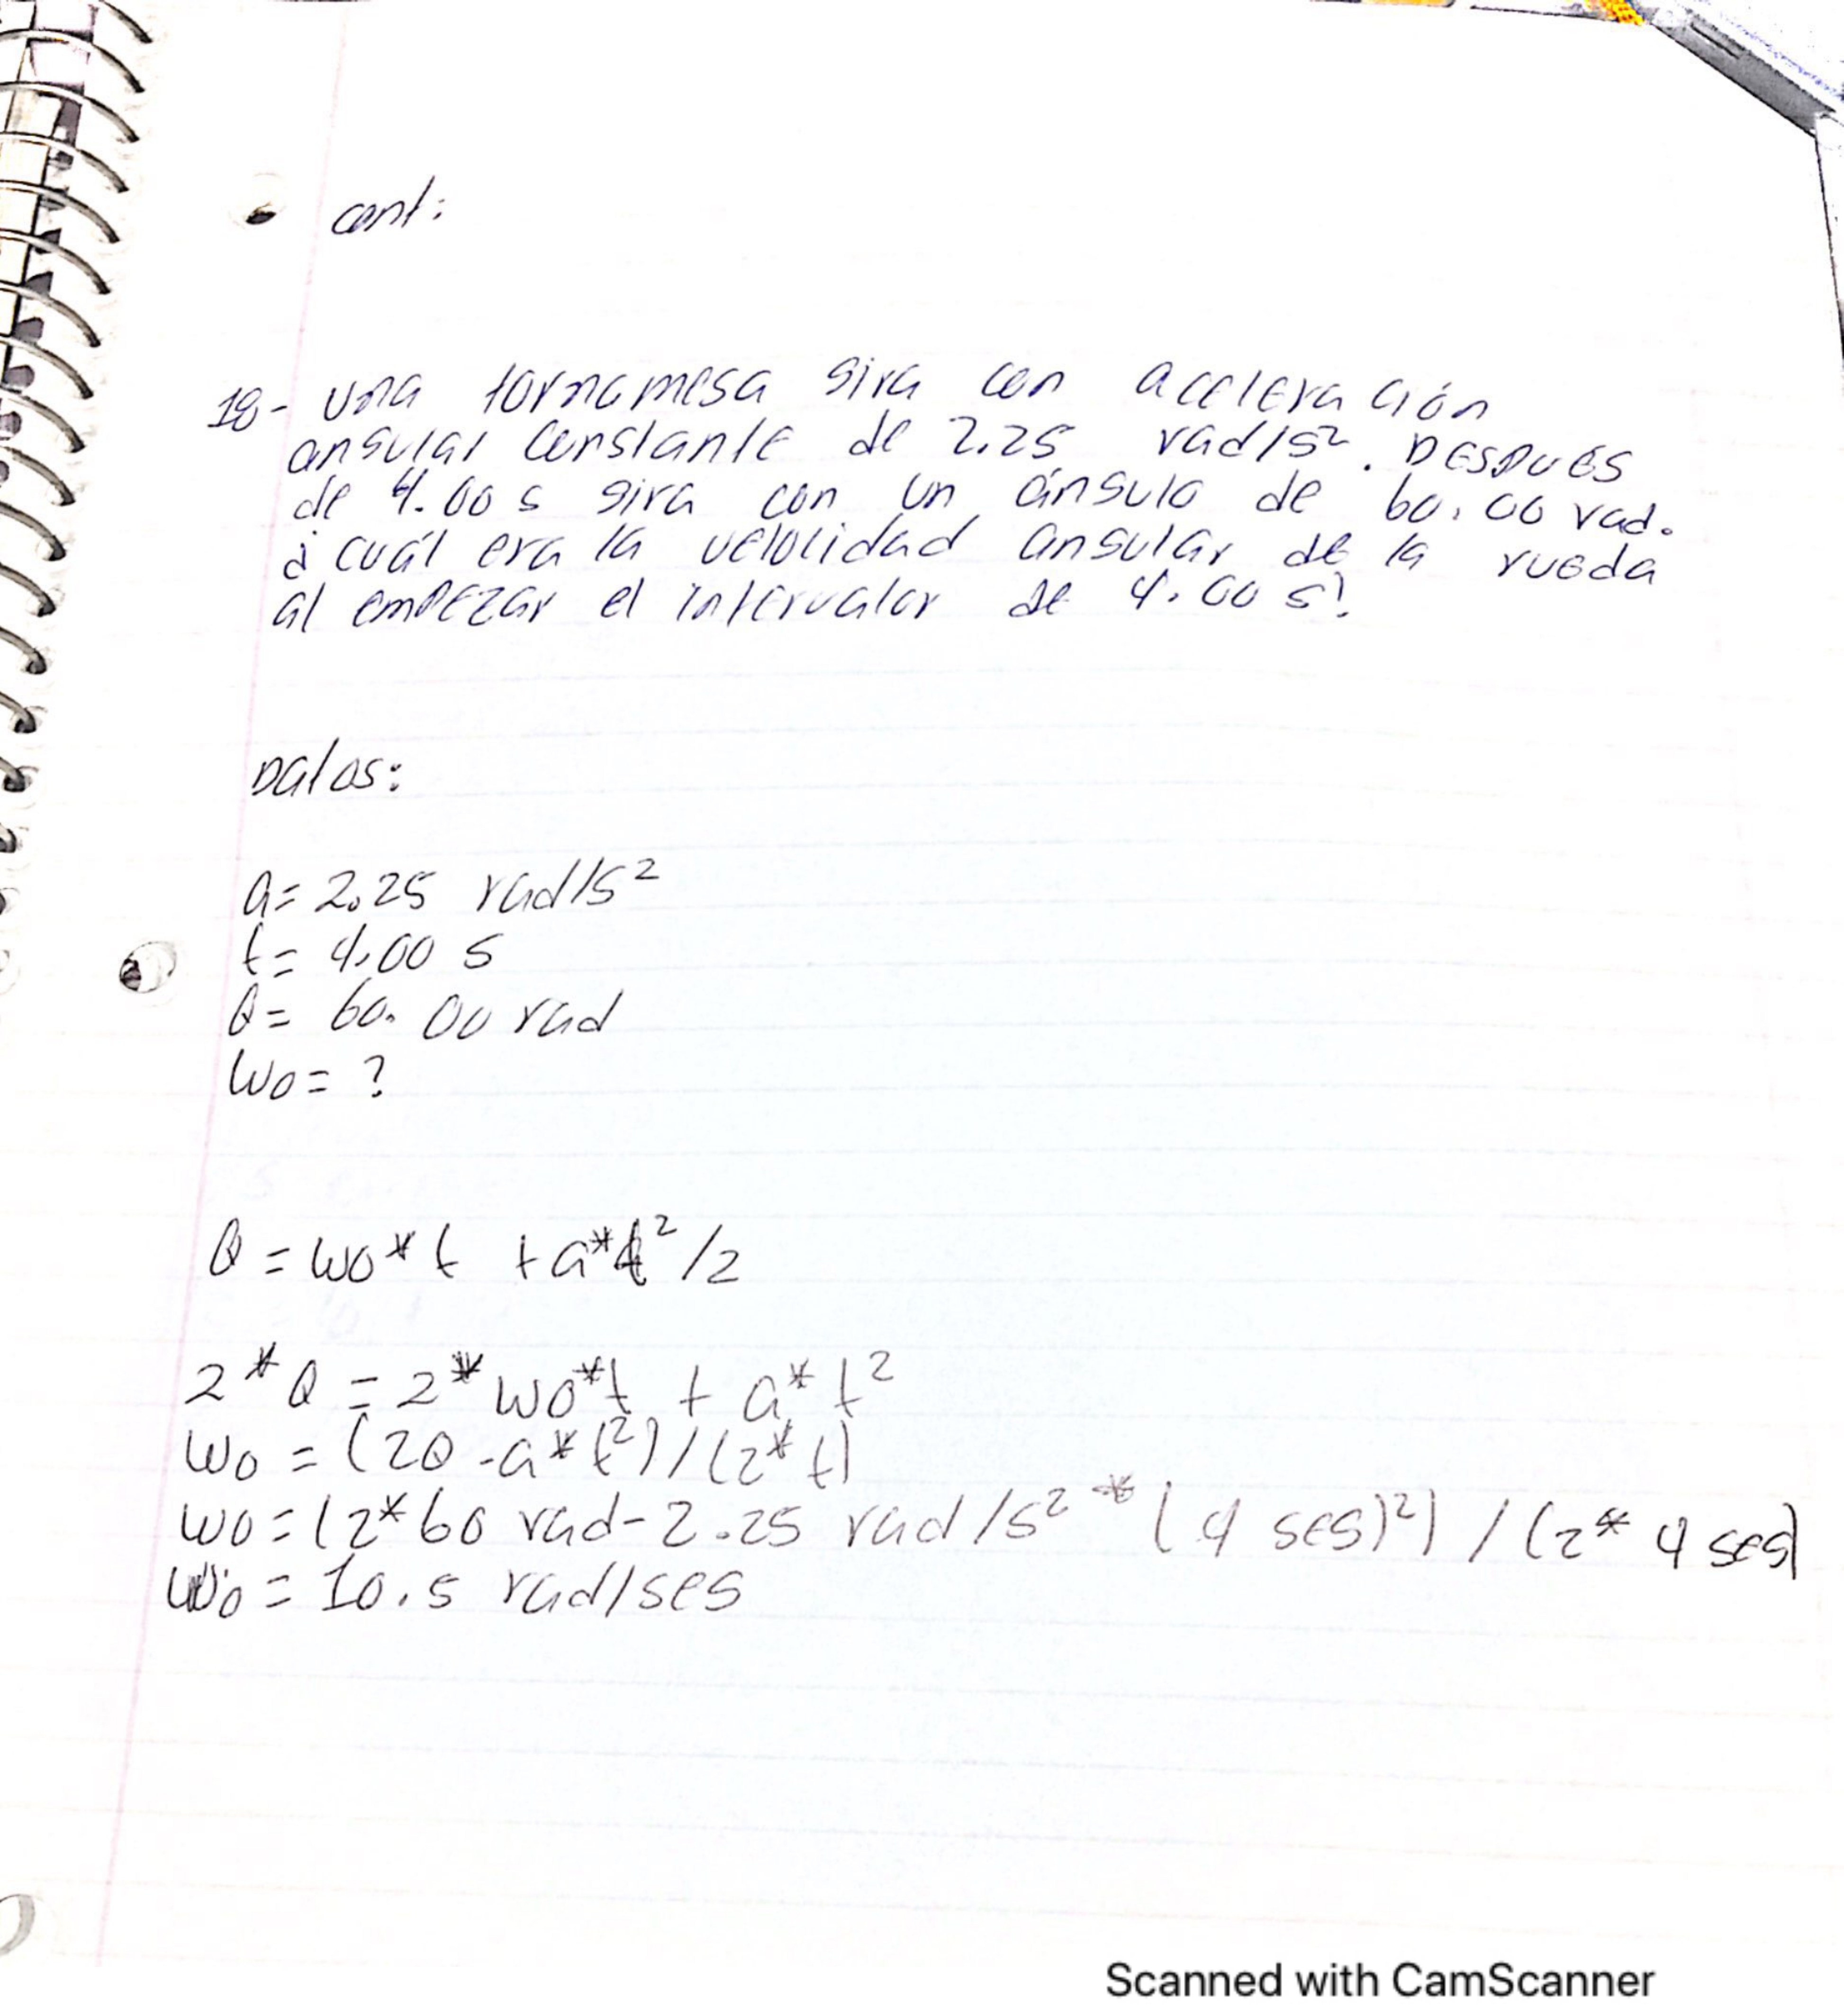 cont:
18- una tornamesa gira con aceleración
angular constante de 2.25 rad/s². Después
de 4.00 s gira con un ángulo de 60.00 rad.
¿cuál era la velocidad angular de la rueda
al empezar el intervalor de 4.00 s?
Datos:
a= 2.25 rad/s²
t= 4.00 s
θ= 60.00 rad
wo= ?
θ = wo*t + a*t²/2
2*θ = 2*wo*t + a*t²
wo = (2θ -a*t²)/(2*t)
wo=(2*60 rad-2.25 rad/s²*(4 seg)²)/(2*4 seg)
wo = 10.5 rad/seg
Scanned with CamScanner